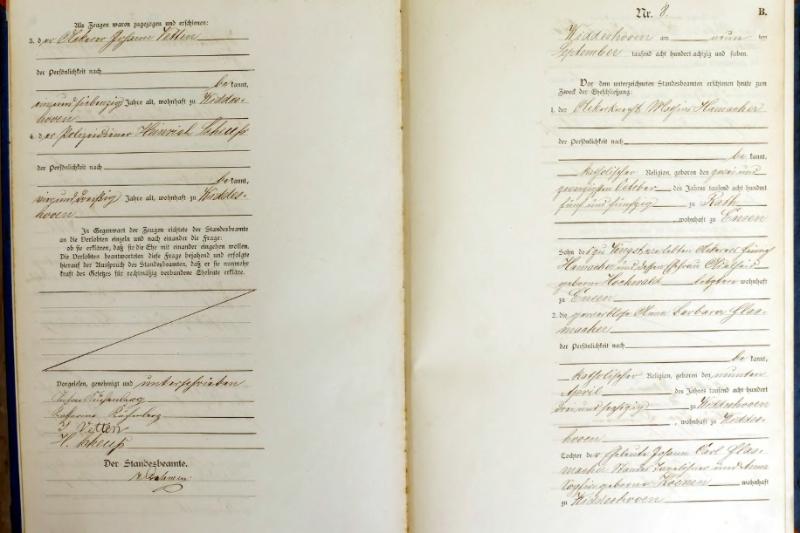 Als Zeugen waren zugezogen und erschienen:
3. der Ackerer Johann Vetten
der Persönlichkeit nach
be kannt,
einundsiebenzig Jahre alt, wohnhaft zu Widdes-
hoven
4. der Polizeidiener Heinrich Scheuß
der Persönlichkeit nach
be kannt,
vierunddreißig Jahre alt, wohnhaft zu Widdes-
hoven
In Gegenwart der Zeugen richtete der Standesbeamte
an die Verlobten einzeln und nach einander die Frage:
ob sie erklären, daß sie die Ehe mit einander eingehen wollen.
Die Verlobten beantworteten diese Frage bejahend und erfolgte
hierauf der Ausspruch des Standesbeamten, daß er sie nunmehr
kraft des Gesetzes für rechtmäßig verbundene Eheleute erkläre.
Vorgelesen, genehmigt und unterschrieben
Katharina
J. Vetten
H. Scheuß
Der Standesbeamte.
Nr. 8. B.
Widdeshoven am neun ten
September tausend acht hundert achtzig und sieben.
Vor dem unterzeichneten Standesbeamten erschienen heute zum
Zweck der Eheschließung:
1. der Ackerknecht Hamacher
der Persönlichkeit nach
be kannt,
katholischer Religion, geboren den zwei und
zwanzigsten October des Jahres tausend acht hundert
fünf und fünfzig zu Rath
, wohnhaft zu Eneen
Sohn des zu verlebten Ackerers
Hamacher und dessen Ehefrau
geborene Hochwald letztere wohnhaft
zu Eneen
2. die gewerblose Anna Barbara Flas-
macher
der Persönlichkeit nach
be kannt,
katholischer Religion, geboren den neunten
April des Jahres tausend acht hundert
drei und sechszig zu Widdeshoven
, wohnhaft zu Widdes-
hoven
Tochter der Eheleute Johann Carl Flas-
macher und Anna
geborener Koenen wohnhaft
zu Widdeshoven